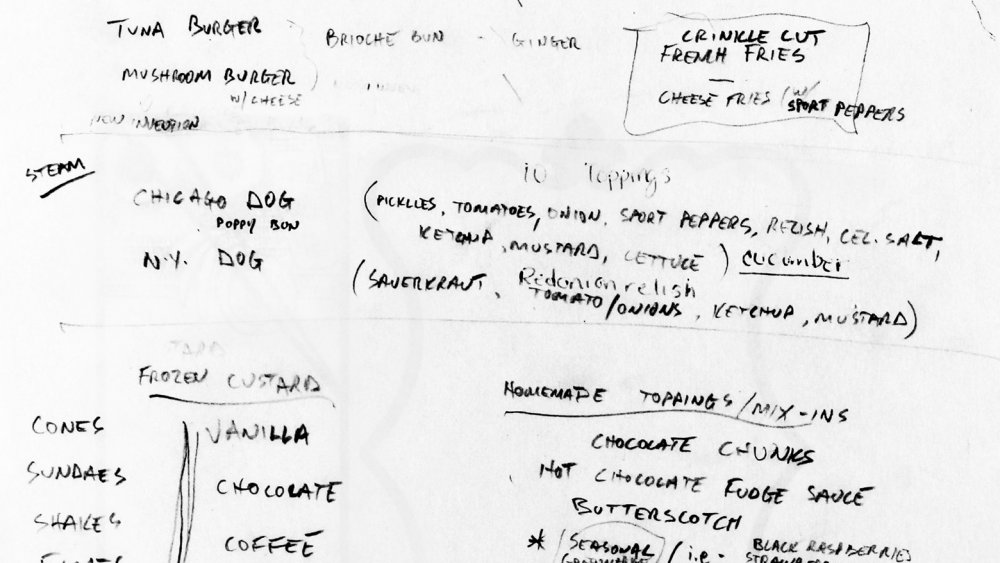 TUNA BURGER
BRIOCHE BUN - GINGER
CRINKLE CUT
FRENCH FRIES
MUSHROOM BURGER
W/ CHEESE
CHEESE FRIES (W/
SPORT PEPPERS
STEAM
10 Toppings
CHICAGO DOG
POPPY BUN
(PICKLES, TOMATOES, ONION, SPORT PEPPERS, RELISH, CEL. SALT,
KETCHUP, MUSTARD, LETTUCE) CUCUMBER
N.Y. DOG
(SAUERKRAUT, Red onion relish
TOMATO/ONIONS, KETCHUP, MUSTARD)
FROZEN CUSTARD
HOMEMADE TOPPINGS/MIX-INS
CONES
VANILLA
CHOCOLATE CHUNKS
SUNDAES
CHOCOLATE
HOT CHOCOLATE FUDGE SAUCE
BUTTERSCOTCH
SHAKES
COFFEE
* SEASONAL / i.e. BLACK RASPBERRIES